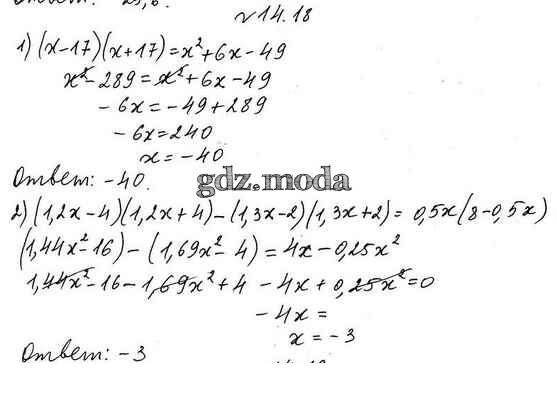 Ответ: 25,6.
№14.18
1) (x-17)(x+17)=x²+6x-49
x²-289=x²+6x-49
-6x=-49+289
-6x=240
x=-40
Ответ: -40.
gdz.moda
2) (1,2x-4)(1,2x+4)-(1,3x-2)(1,3x+2)=0,5x(8-0,5x)
(1,44x²-16)-(1,69x²-4)=4x-0,25x²
1,44x²-16-1,69x²+4-4x+0,25x²=0
-4x=
x=-3
Ответ: -3